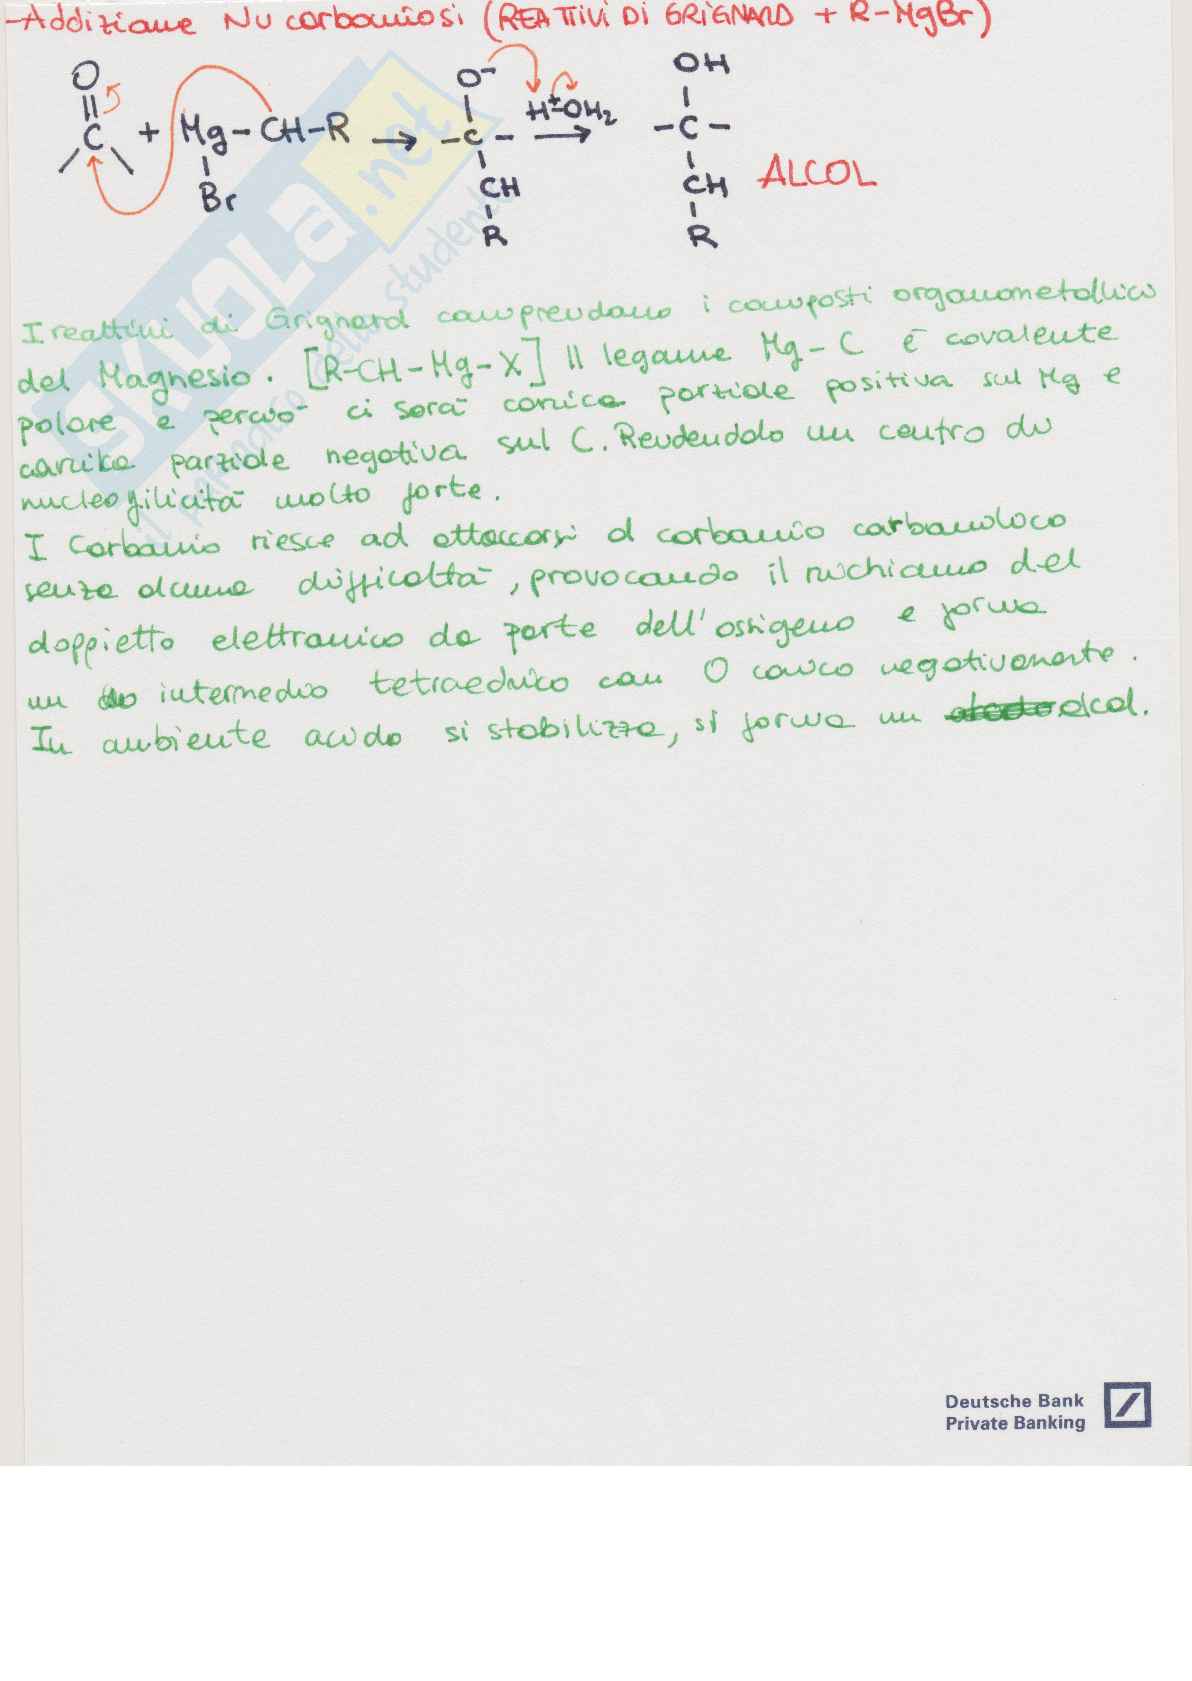 -Addizione Nu carboniosi (REATTIVI DI GRIGNARD + R-MgBr)
O O- OH
|| | H+-OH2 |
C + Mg-CH-R → -C- → -C-
| | |
Br CH CH ALCOL
| |
R R
I reattivi di Grignard comprendono i composti organometallici
del Magnesio. [R-CH-Mg-X] Il legame Mg-C è covalente
polare e perciò ci sarà carica parziale positiva sul Mg e
carica parziale negativa sul C. Rendendolo un centro di
nucleofilicità molto forte.
I Carbonio riesce ad attaccarsi al carbonio carbonilico
senza alcuna difficoltà, provocando il richiamo del
doppietto elettronico da parte dell'ossigeno e forma
un intermedio tetraedrico con O carico negativamente.
In ambiente acido si stabilizza, si forma un alcol.
SKUOLA.net
il paradiso dello studente
Deutsche Bank
Private Banking